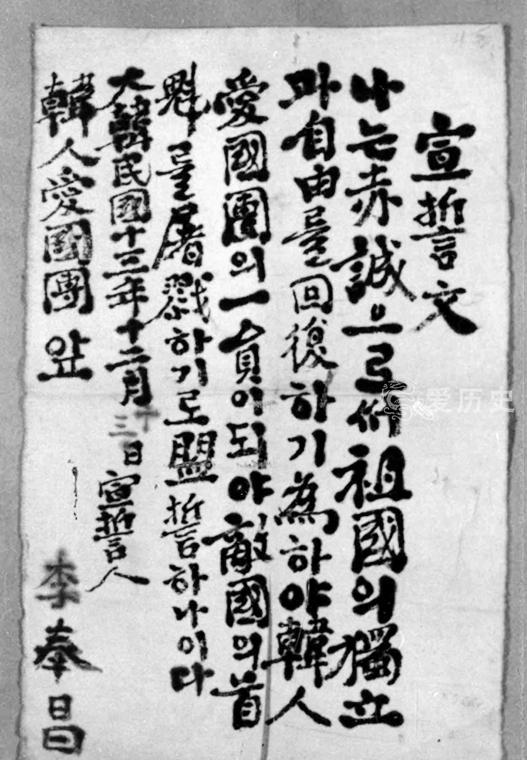 宣誓文
나는赤誠으로써祖國의獨立
과自由를回復하기爲하야韓人
愛國團의一員이되야敵國의首
魁를屠戮하기로盟誓하나이다
大韓民國十三年十二月十三日
宣誓人
李奉昌
韓人愛國團앞
爱历史